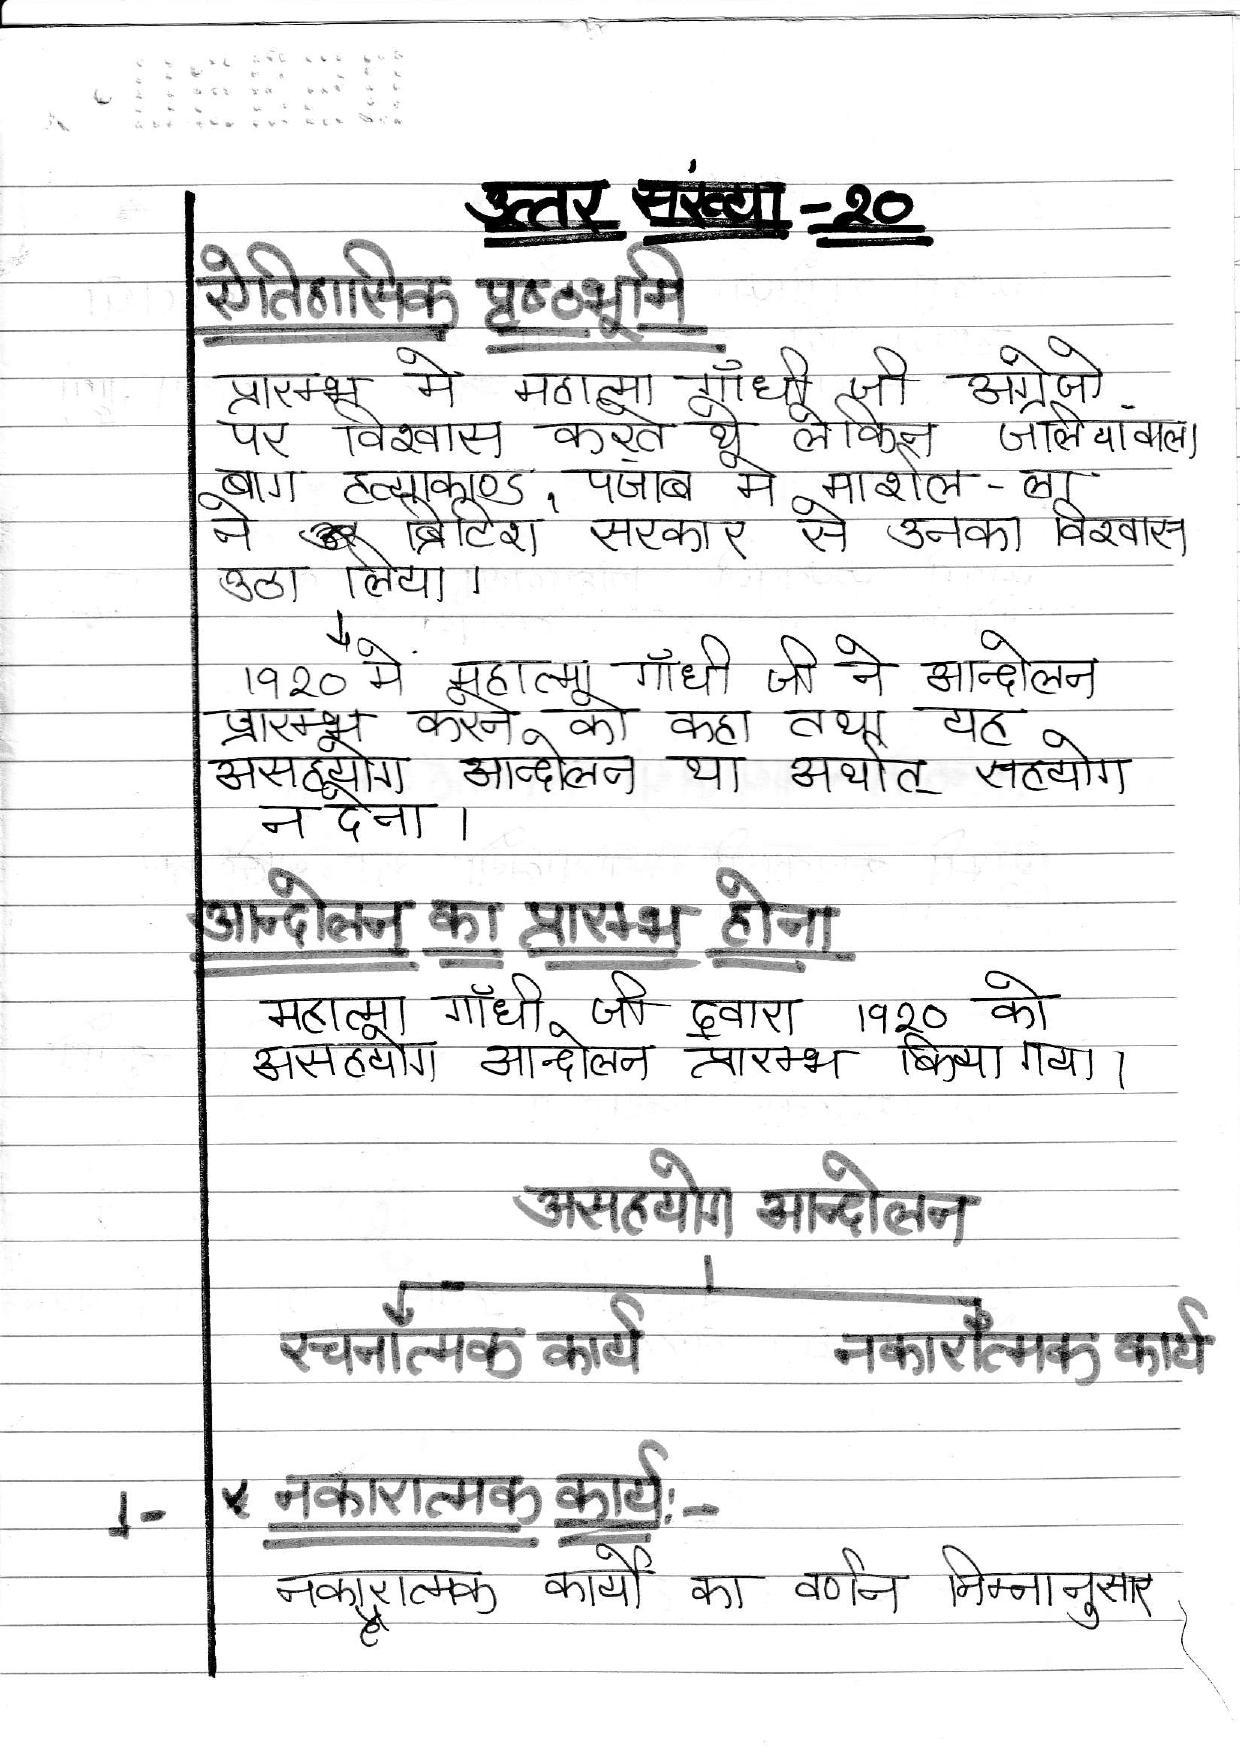 उत्तर संख्या - २०
ऐतिहासिक पृष्ठभूमि
प्रारम्भ में महात्मा गाँधी जी अंग्रेजो
पर विश्वास करते थे लेकिन जलियावाला
बाग हत्याकाण्ड, पंजाब में मार्शल - ला
ने ब्रिटिश सरकार से उनका विश्वास
उठा लिया।
↓
1920 में महात्मा गाँधी जी ने आन्दोलन
प्रारम्भ करने को कहा तथा यह
असहयोग आन्दोलन था अर्थात् सहयोग
न देना।
आन्दोलन का प्रारम्भ होना
महात्मा गाँधी जी द्वारा 1920 को
असहयोग आन्दोलन प्रारम्भ किया गया।
असहयोग आन्दोलन
रचनात्मक कार्य नकारात्मक कार्य
1- नकारात्मक कार्य:-
नकारात्मक कार्यों का वर्णन निम्नानुसार
है